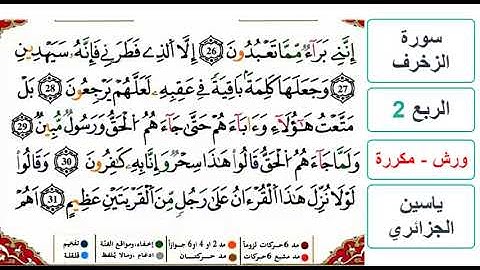 إِنَّنِي بَرَآءٌ مِّمَّا تَعْبُدُونَ 26 إِلَّا اَلذِے فَطَرَنِے فَإِنَّهُۥ سَيَهْدِينِ
27 وَجَعَلَهَا كَلِمَةَۢ بَاقِيَةً فِے عَقِبِهِۦ لَعَلَّهُمْ يَرْجِعُونَ 28 بَلْ
مَتَّعْتُ هَٰٓؤُلَآءِ وَءَابَآءَهُمْ حَتَّىٰ جَآءَهُمُ اُلْحَقُّ وَرَسُولٌ مُّبِينٌ 29
وَلَمَّا جَآءَهُمُ اُلْحَقُّ قَالُوا هَٰذَا سِحْرٌ وَإِنَّا بِهِۦ كَٰفِرُونَ 30 وَقَالُوا
لَوْلَا نُزِّلَ هَٰذَا اَلْقُرْءَانُ عَلَىٰ رَجُلٍ مِّنَ اَلْقَرْيَتَيْنِ عَظِيمٍ 31 أَهُمْ
سورة
الزخرف
الربع 2
ورش - مكررة
ياسين
الجزائري
مد 6 حركات لزوماً
مد 2 أو 4 أو 6 جوازاً
إخفاء، ومواقع الغنة
تفخيم
مد مشبع 6 حركات
مد حركتان
إدغام، ومالا يلفظ
قلقلة